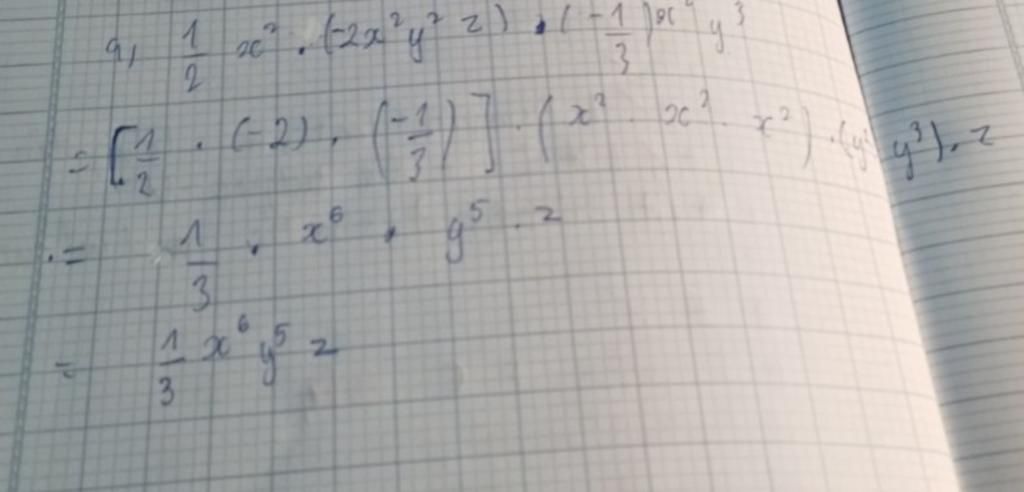 a, 1/2 x² . (-2x²y² z) . (-1/3) x² y³
= [1/2 . (-2) . (-1/3)] . (x² . x² . x²) . (y² y³) . z
.= 1/3 . x⁶ . y⁵ . z
= 1/3 x⁶ y⁵ z